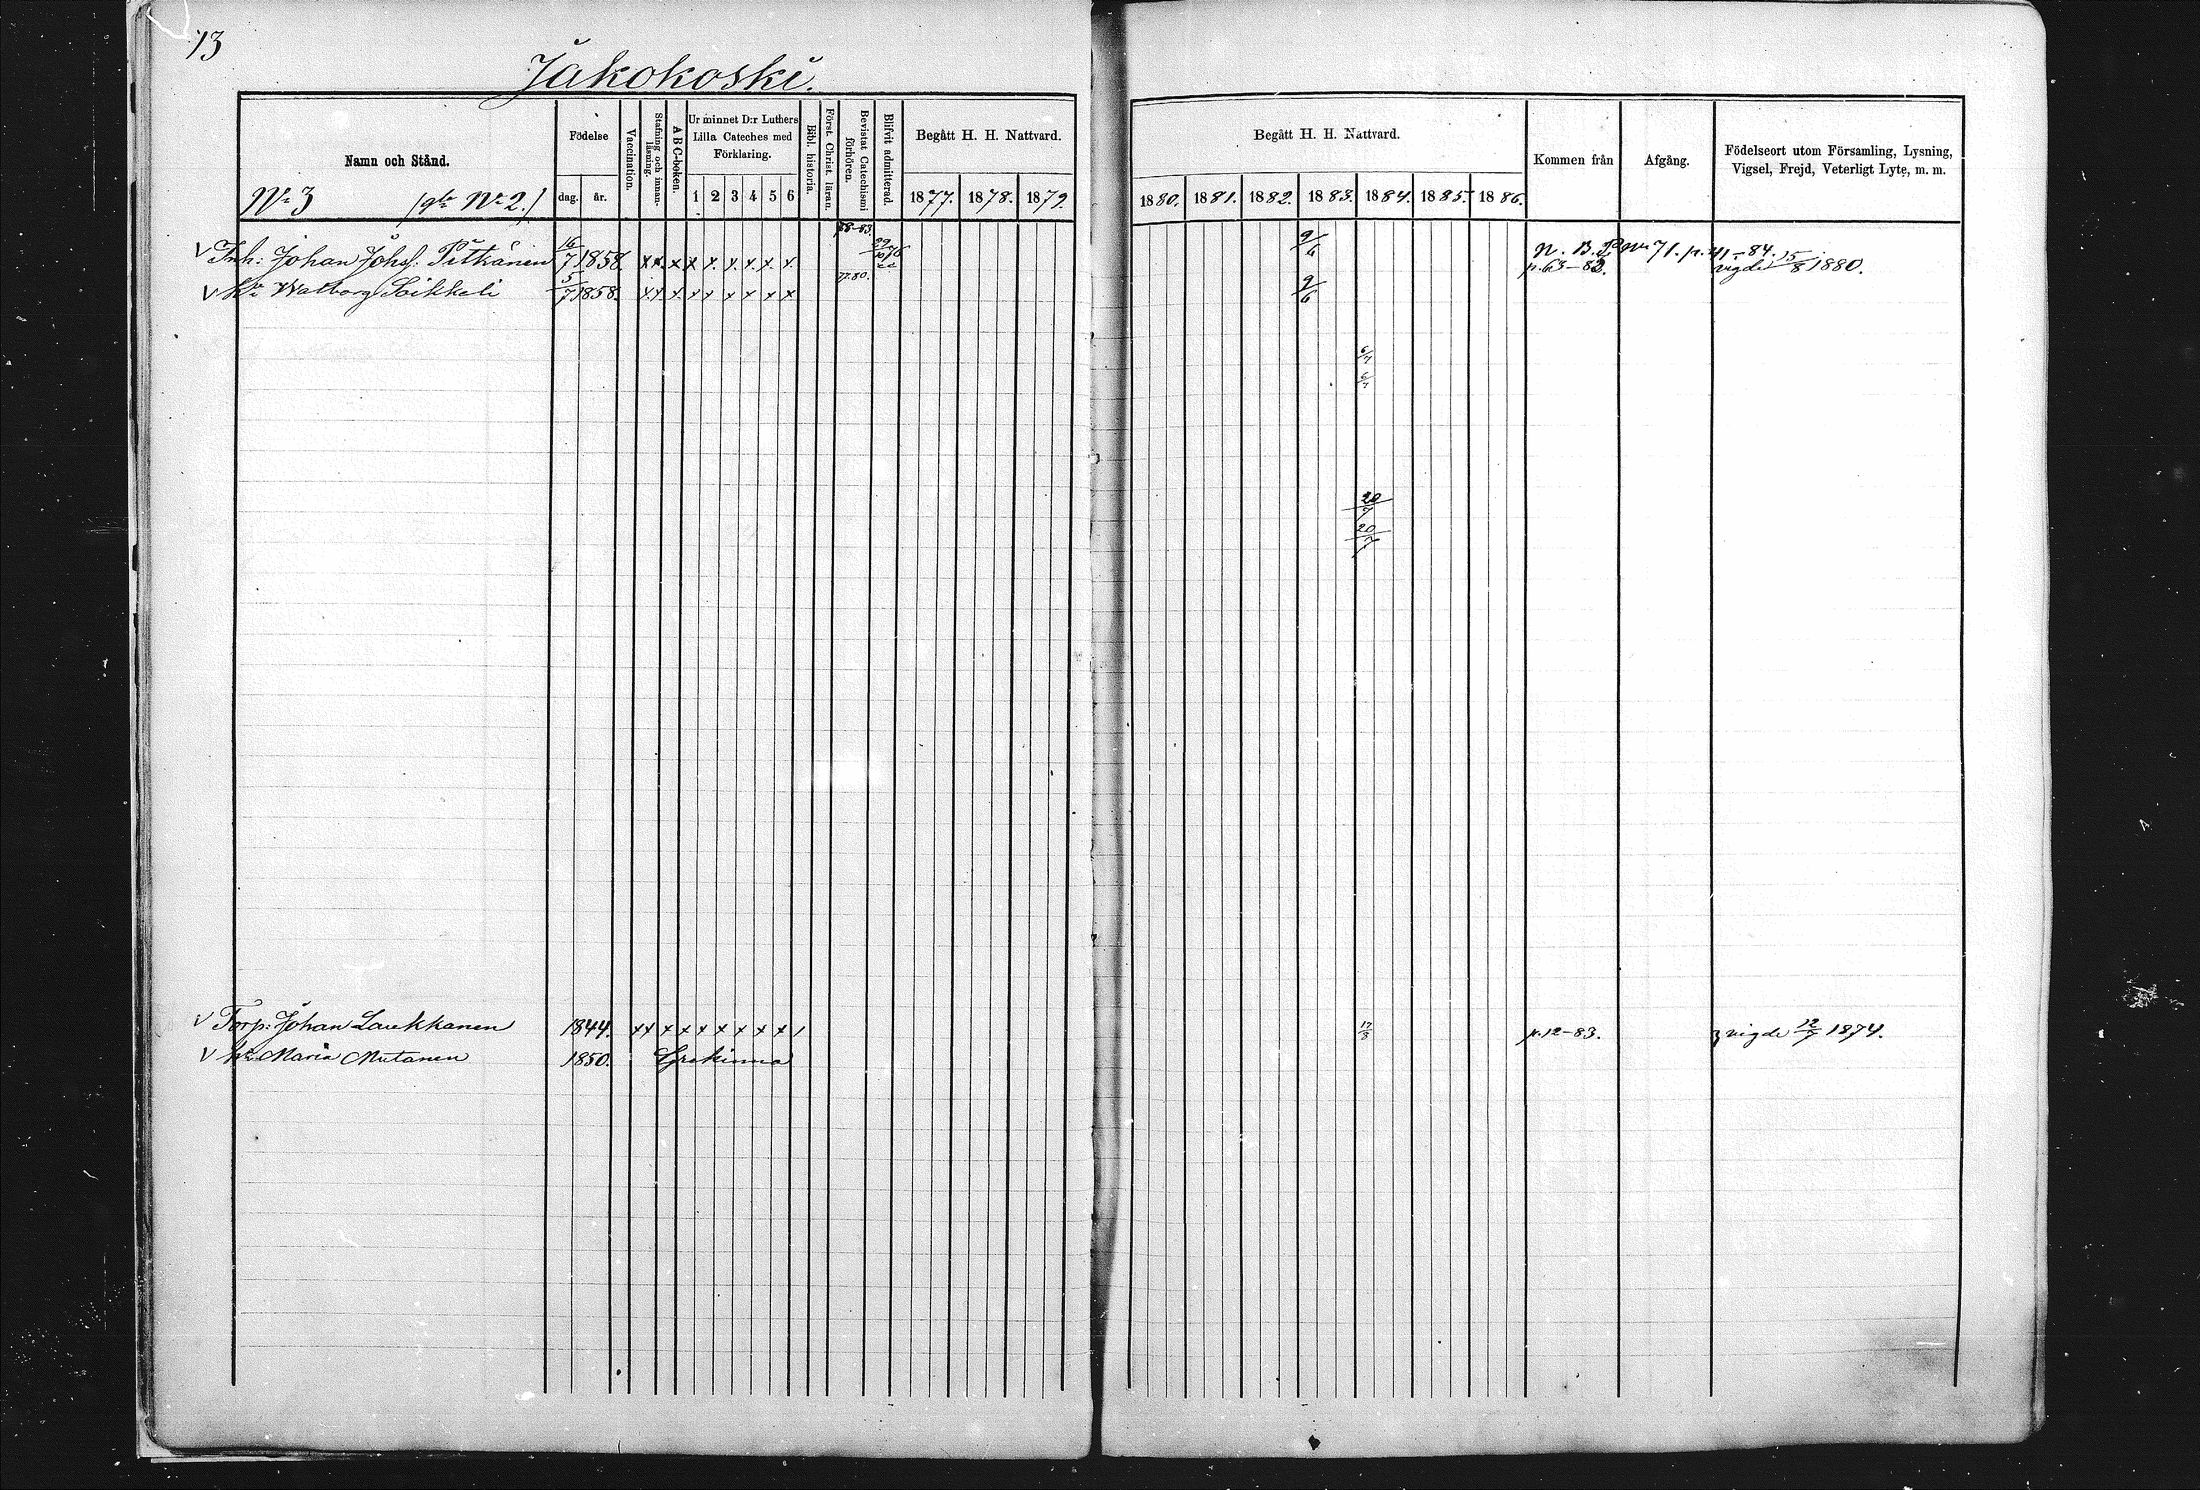 13
Jakokoski.
Namn och Stånd.
Födelse
Vaccination.
Stafning och innanläsning.
ABC-boken.
Ur minnet D:r Luthers Lilla Cateches med Förklaring.
Bibl. historia.
Först. Christ. läran.
Bevistat Catechismi förhören.
Blifvit admitterad.
Begått H. H. Nattvard.
Begått H. H. Nattvard.
Kommen från
Afgång.
Födelseort utom Församling, Lysning, Vigsel, Frejd, Veterligt Lyte, m. m.
No 3
No 2.
dag. år. 1 2 3 4 5 6 1877. 1878. 1879. 1880. 1881. 1882. 1883. 1884. 1885. 1886.
v Inh: Johan Johs. Pitkänen 16/7 1858. x x. x x x. x. x. x. x. 9/6 N. B. No 71. p. 41-84.
p. 63-82. vigde 15/8 1880.
77.80.
v h:u Walborg Soikkeli 5/7 1858. x x. x. x x x x x x 9/6
6/7
6/7
20/7
20/7
v Torp: Johan Laukkanen 1844. x x x x x x x x x / 17/8 p. 12-83. vigde 12/7 1874.
v h:u Maria Mutanen 1850. Grekinna